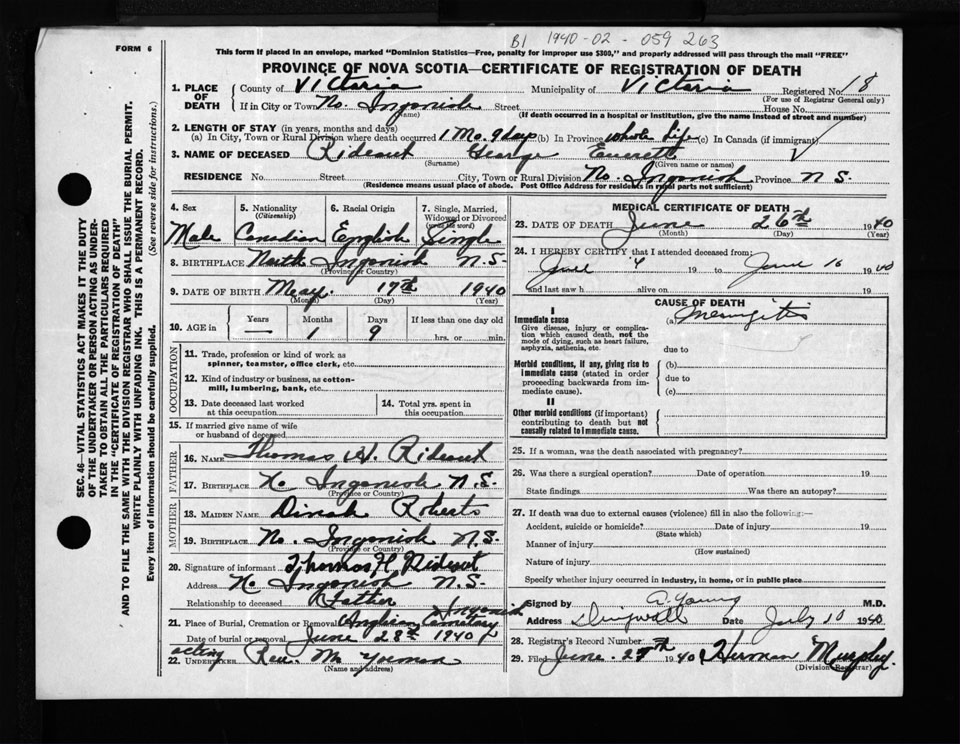 B1 1940-02-059263
FORM 6
This form if placed in an envelope, marked "Dominion Statistics—Free, penalty for improper use $300," and properly addressed will pass through the mail "FREE"
PROVINCE OF NOVA SCOTIA—CERTIFICATE OF REGISTRATION OF DEATH
SEC. 46—VITAL STATISTICS ACT MAKES IT THE DUTY
OF THE UNDERTAKER OR PERSON ACTING AS UNDER-
TAKER TO OBTAIN ALL THE PARTICULARS REQUIRED
IN THE "CERTIFICATE OF REGISTRATION OF DEATH"
AND TO FILE THE SAME WITH THE DIVISION REGISTRAR WHO SHALL ISSUE THE BURIAL PERMIT.
WRITE PLAINLY WITH UNFADING INK. THIS IS A PERMANENT RECORD.
Every item of information should be carefully supplied. (See reverse side for instructions.)
1. PLACE OF DEATH
County of Victoria Municipality of Victoria Registered No. 18
(For use of Registrar General only)
If in City or Town No. Ingonish Street House No.
(Name) (If death occurred in a hospital or institution, give the name instead of street and number)
2. LENGTH OF STAY (in years, months and days)
(a) In City, Town or Rural Division where death occurred 1 Mo. 9 days (b) In Province whole life (c) In Canada (if immigrant)
3. NAME OF DECEASED Rideout George Emmett
(Surname) (Given name or names)
RESIDENCE No. Street City, Town or Rural Division No. Ingonish Province N S.
(Residence means usual place of abode. Post Office Address for residents in rural parts not sufficient)
4. Sex
Male
5. Nationality (Citizenship)
Canadian
6. Racial Origin
English
7. Single, Married, Widowed or Divorced (write the word)
Single
8. BIRTHPLACE North Ingonish N.S.
(Province or Country)
9. DATE OF BIRTH May. 17th 1940
(Month) (Day) (Year)
10. AGE in Years Months Days If less than one day old
— 1 9 hrs. or min.
OCCUPATION
11. Trade, profession or kind of work as spinner, teamster, office clerk, etc.
12. Kind of industry or business, as cotton-mill, lumbering, bank, etc.
13. Date deceased last worked at this occupation
14. Total yrs. spent in this occupation
15. If married give name of wife or husband of deceased
FATHER
16. NAME Thomas H. Rideout
17. BIRTHPLACE No Ingonish N.S.
(Province or Country)
MOTHER
18. MAIDEN NAME Dinah Roberts
19. BIRTHPLACE No. Ingonish N.S.
(Province or Country)
20. Signature of informant Thomas H Rideout
Address No Ingonish N.S.
Relationship to deceased Father
21. Place of Burial, Cremation or Removal Anglican Cemetery Ingonish
Date of burial or removal June 28th 1940
acting
22. UNDERTAKER Rev. M Yeoman
(Name and address)
MEDICAL CERTIFICATE OF DEATH
23. DATE OF DEATH June 26th 1940
(Month) (Day) (Year)
24. I HEREBY CERTIFY that I attended deceased from:
June 4 19 to June 16 1940
and last saw h alive on 19
CAUSE OF DEATH
I
Immediate cause
Give disease, injury or complication which caused death, not the mode of dying, such as heart failure, asphyxia, asthenia, etc.
(a) Meningitis
due to
Morbid conditions, if any, giving rise to immediate cause (stated in order proceeding backwards from immediate cause).
(b)
due to
(c)
II
Other morbid conditions (if important) contributing to death but not causally related to immediate cause.
25. If a woman, was the death associated with pregnancy?
26. Was there a surgical operation? Date of operation 19
State findings Was there an autopsy?
27. If death was due to external causes (violence) fill in also the following:—
Accident, suicide or homicide? Date of injury 19
(State which)
Manner of injury
(How sustained)
Nature of injury
Specify whether injury occurred in industry, in home, or in public place
Signed by A. Young M.D.
Address Dingwall Date July 10 1940
28. Registrar's Record Number
29. Filed June. 27th 1940 Herman Murphy.
(Division Registrar)